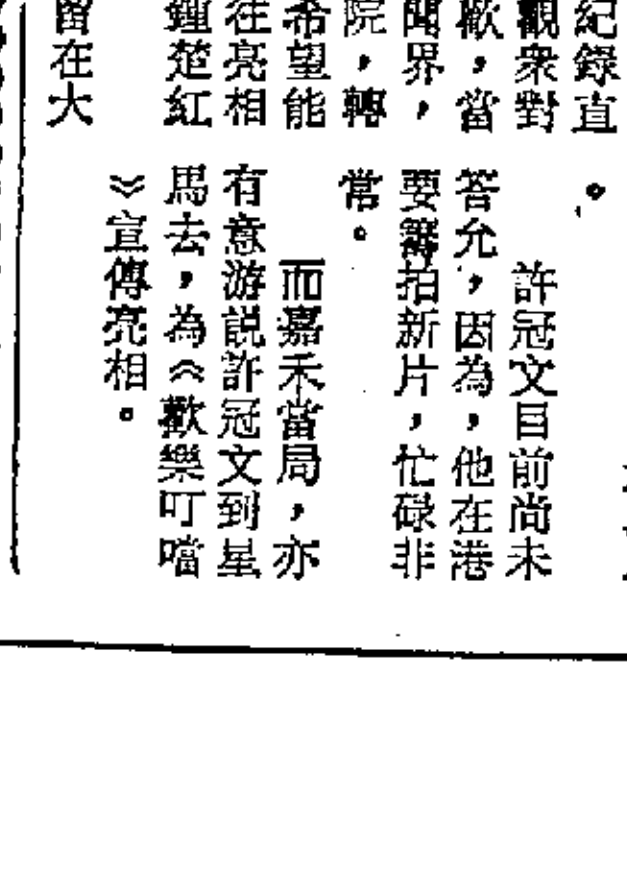 紀錄直
觀衆對
歡，當
聞界，
院，轉
希望能
往亮相
鍾楚紅
留在大
。
許冠文目前尚未
答允，因為，他在港
要籌拍新片，忙碌非
常。
而嘉禾當局，亦
有意游説許冠文到星
馬去，為《歡樂叮噹
》宣傳亮相。